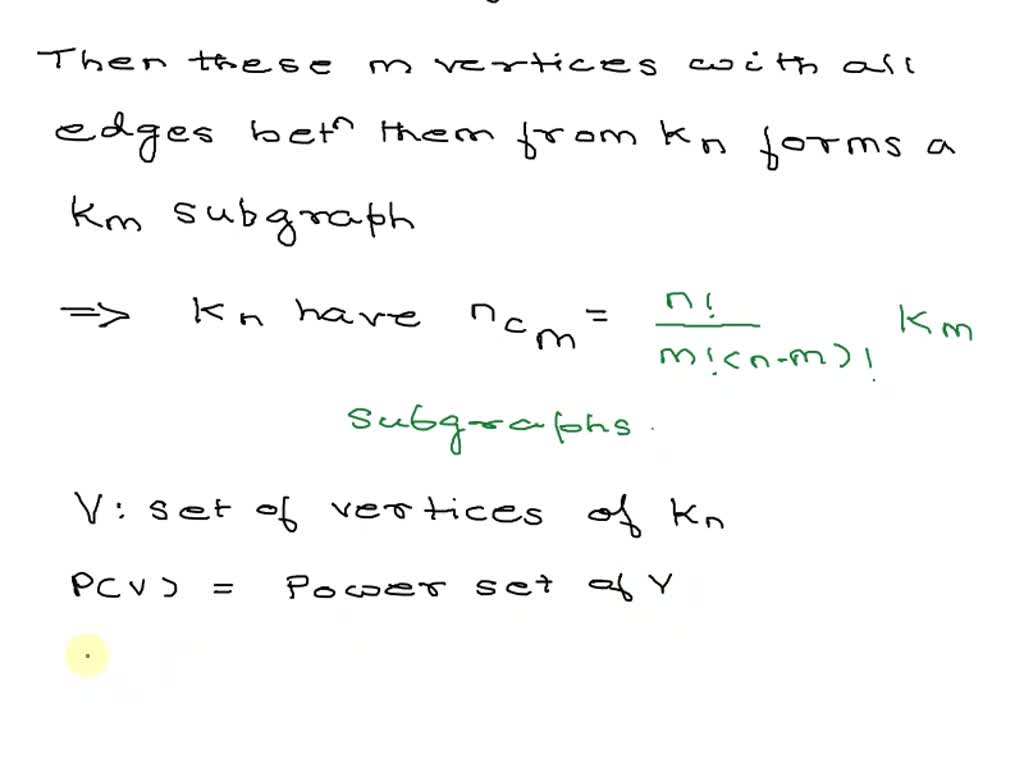 Then these m vertices with all
edges betⁿ them from Kn forms a
Km subgraph
=> Kn have nCm = n! / m!(n-m)! Km
subgraphs.
V: set of vertices of Kn
P(V) = Power set of V